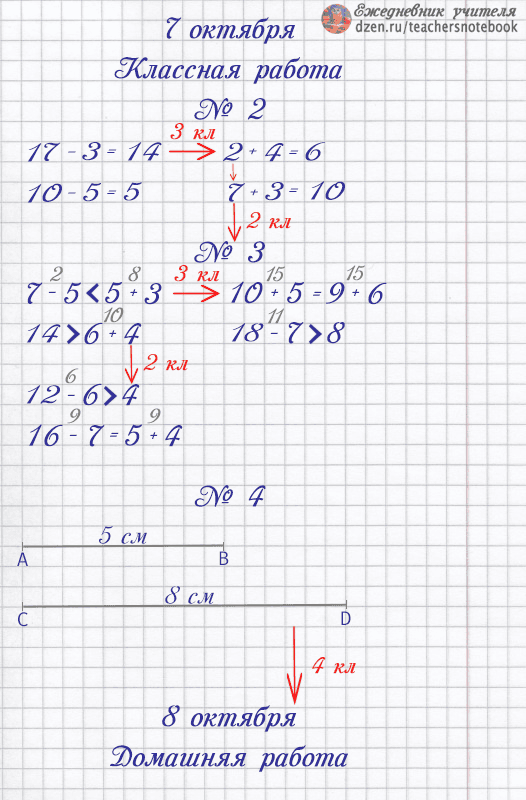 Ежедневник учителя
dzen.ru/teachersnotebook
7 октября
Классная работа
№ 2
3 кл
17 - 3 = 14 2 + 4 = 6
10 - 5 = 5 7 + 3 = 10
2 кл
№ 3
2 8 3 кл 15 15
7 - 5 < 5 + 3 10 + 5 = 9 + 6
10 11
14 > 6 + 4 18 - 7 > 8
2 кл
6
12 - 6 > 4
9 9
16 - 7 = 5 + 4
№ 4
5 см
A B
8 см
C D
4 кл
8 октября
Домашняя работа